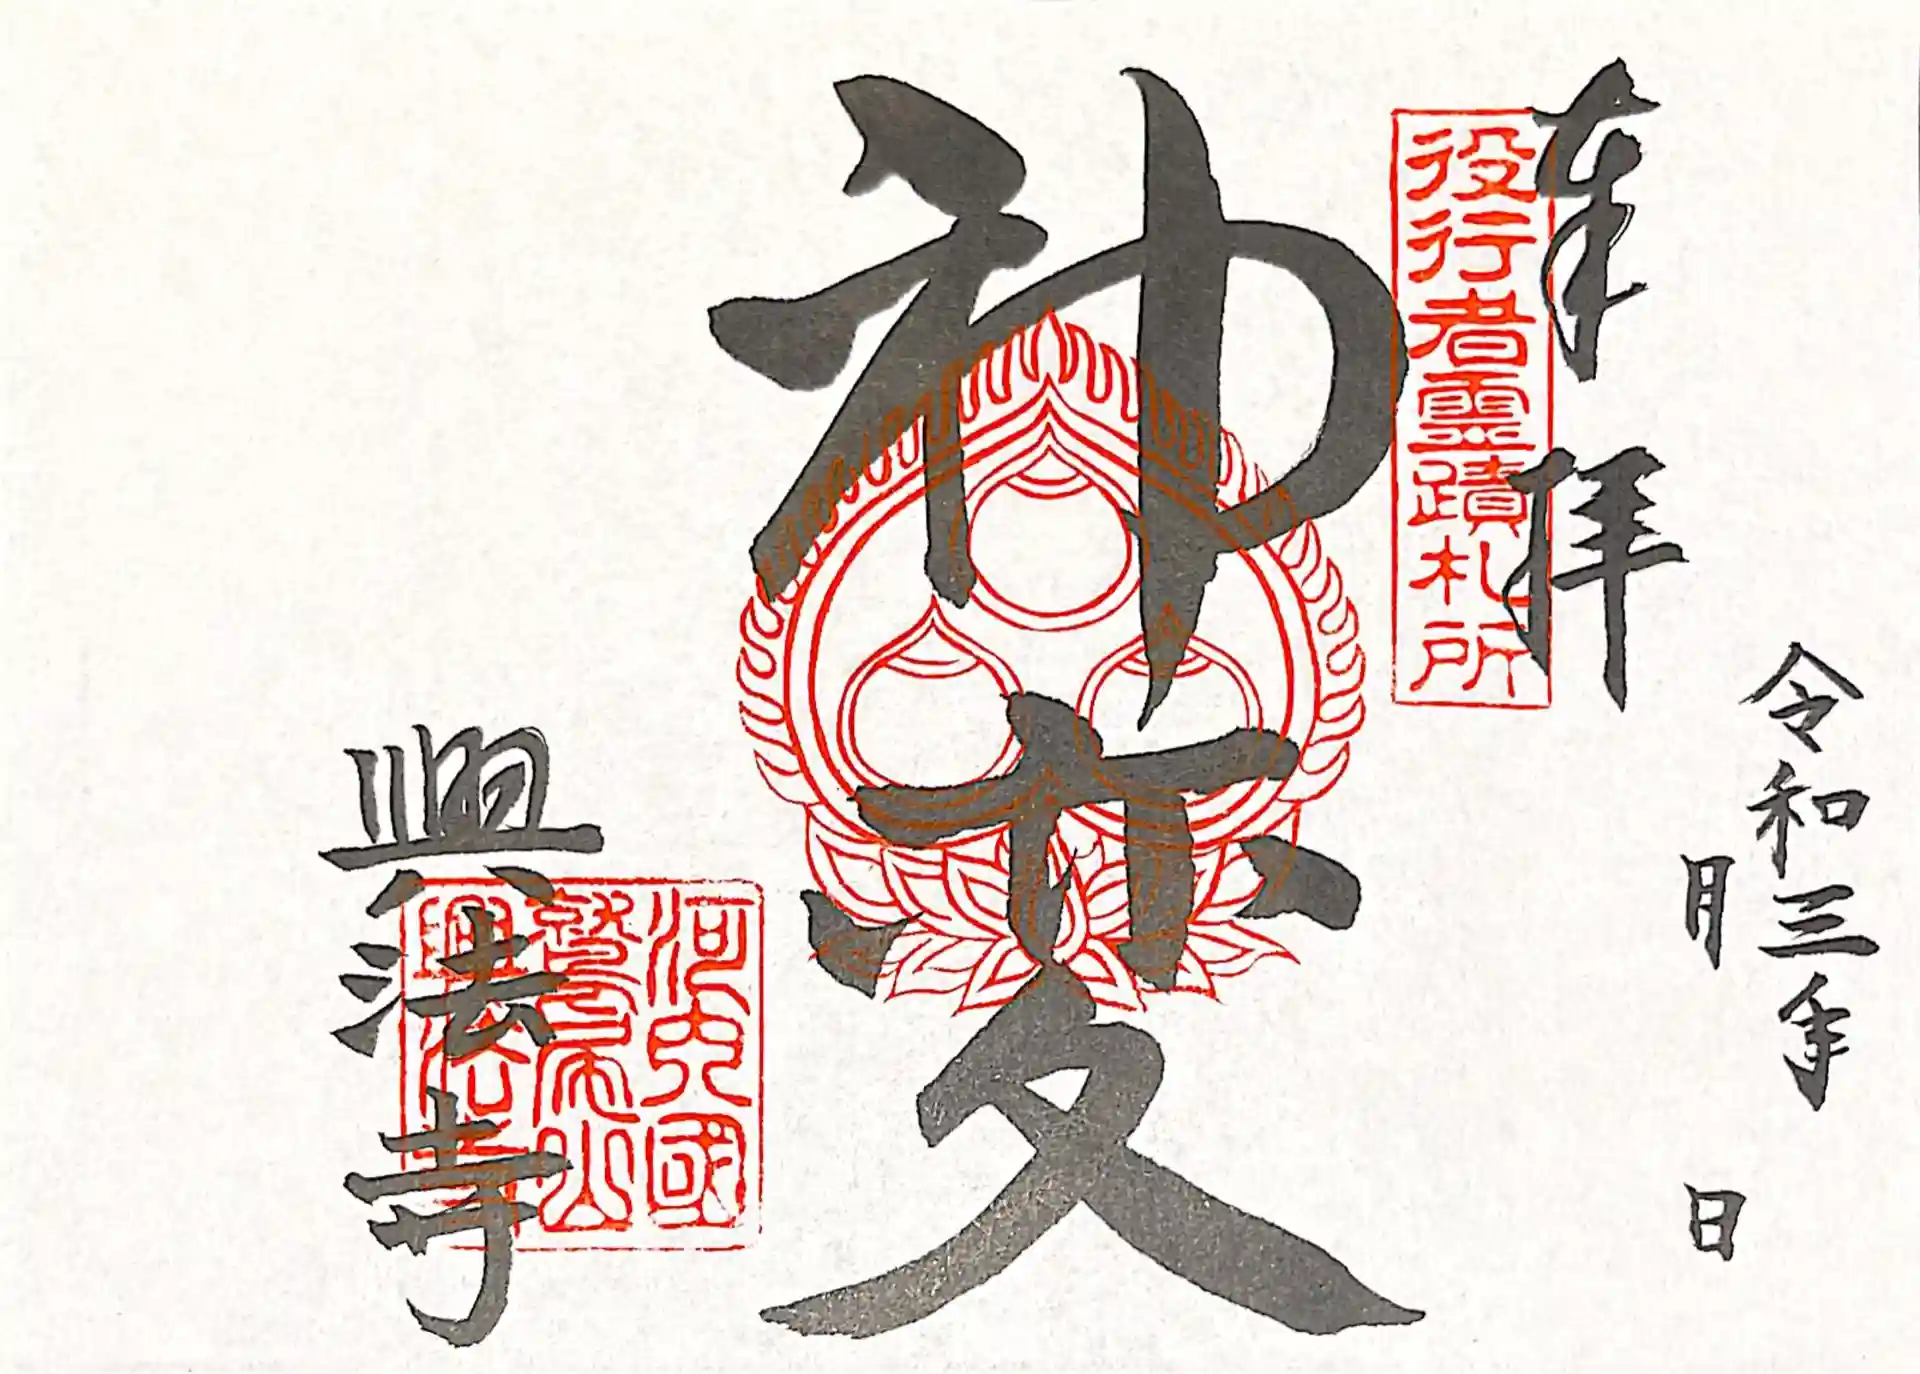 令和三年
月　日
奉拝
役行者霊蹟札所
神変
興法寺
河内國
鷲尾山
興法寺